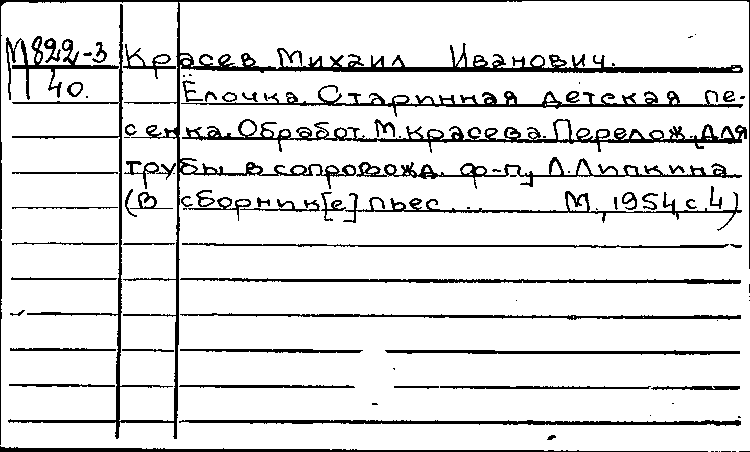 М822-3 Красев Михаил Иванович.
П 40. Ёлочка. Старинная детская пе-
сенка. Обработ. М. Красева. Перелож. для
трубы в сопровожд. ф-п, Л. Липкина
(В сборник[е] пьес... М., 1954, с. 4)